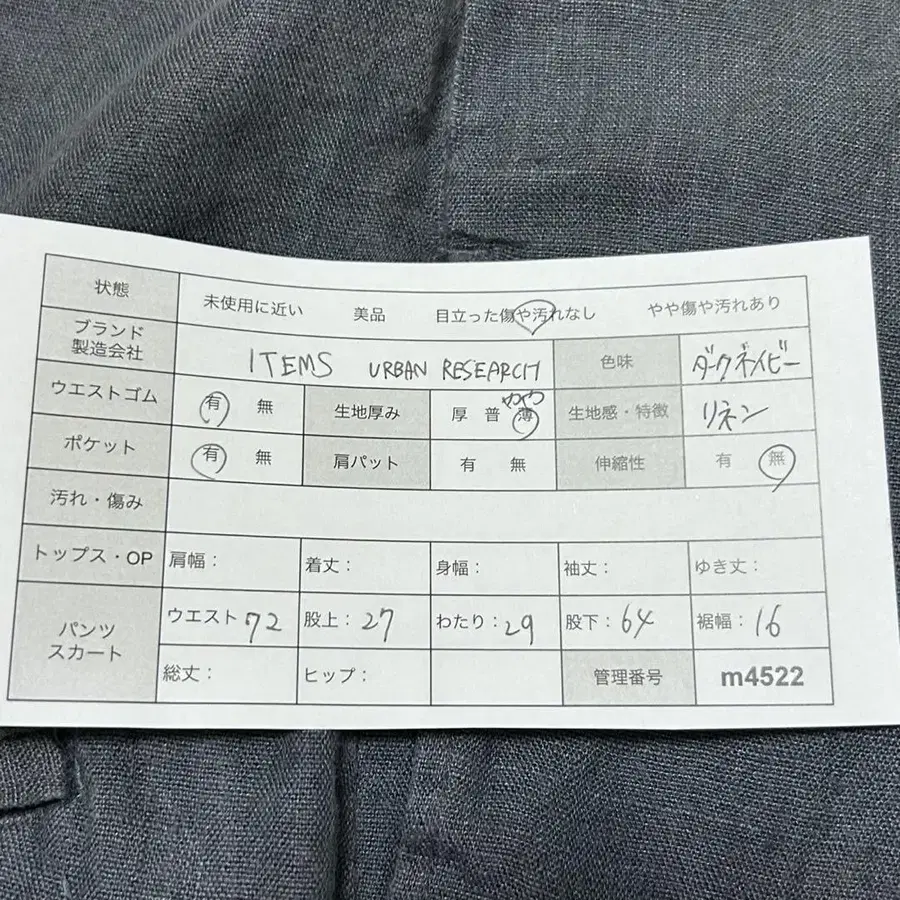 状態 未使用に近い 美品 目立った傷や汚れなし やや傷や汚れあり
ブランド
製造会社 ITEMS URBAN RESEARCH 色味 ダークネイビー
やや
ウエストゴム 有 無 生地厚み 厚 普 薄 生地感・特徴 リネン
ポケット 有 無 肩パット 有 無 伸縮性 有 無
汚れ・傷み
トップス・OP 肩幅: 着丈: 身幅: 袖丈: ゆき丈:
パンツ
スカート
ウエスト 72 股上: 27 わたり: 29 股下: 64 裾幅: 16
総丈: ヒップ: 管理番号 m4522